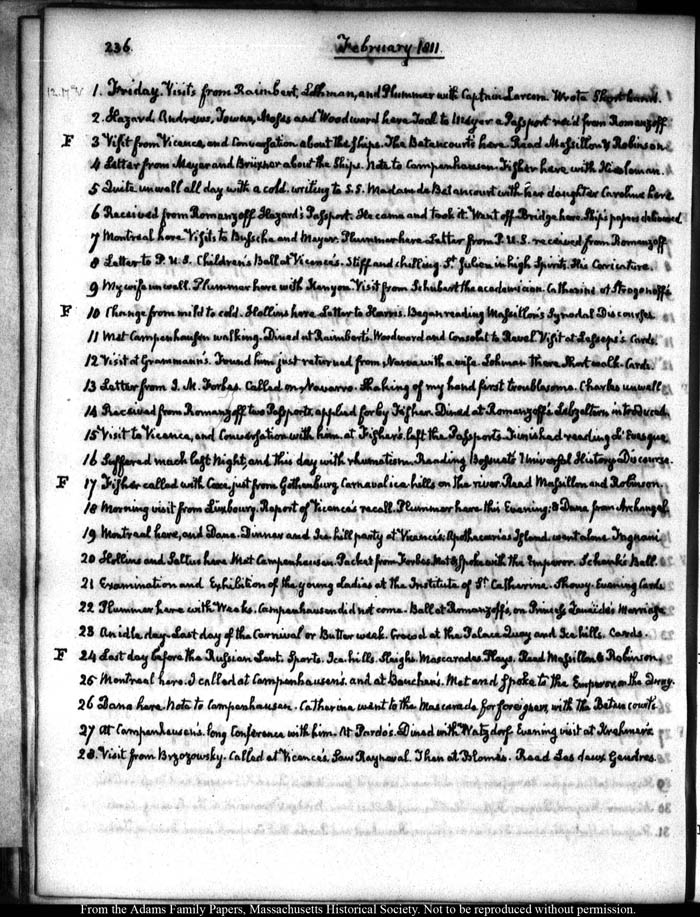 236. February 1811.
12. 17. IV
1. Friday. Visits from Raimbert, Lohman, and Plummer with Captain Larcom. Wrote Short hand.
2. Hazard, Andrews, Towne, Moses and Woodward here. Took to Meyer a Passport rec'd from Romanzoff.
F 3 Visit from Vicence, and Conversation about the Ships. The Betancourts here. Read Massillon & Robinson.
4 Letter from Meyer and Brüxner about the Ships. Note to Campenhausen. Fisher here with Hisleman.
5 Quite unwell all day with a cold. writing to S.S. Madame de Betancourt with her daughter Caroline here.
6 Received from Romanzoff Hazard's Passport. He came and took it. Went off. Bridge here. Ship's papers delivered
7 Montreal here. Visits to Bussche and Mayer. Plummer here. Letter from P.U.S. received from Romanzoff
8 Letter to P.U.S. Children's Ball at Vicence's. Stiff and chilling. St. Julien in high Spirits. His Caricature.
9 My wife unwell. Plummer here with Kenyon. Visit from Schubert the academician. Catharine at Strogonoff's
F 10 Change from mild to cold. Hollins here. Letter to Harris. Began reading Massillon's Synodal Discourses.
11 Met Campenhausen walking. Dined at Raimbert's. Woodward and Consolat to Revel. Visit at Lesseps's. Cards.
12 Visit at Grammann's. Found him just returned from Narva with a wife. Lohman there. Short walk. Cards.
13 Letter from J. M. Forbes. Called on Navarro. Shaking of my hand first troublesome. Charles unwell.
14 Received from Romanzoff two Passports, applied for by Fisher. Dined at Romanzoff's. Labzeltern introduced.
15 Visit to Vicence, and Conversation with him. at Fisher's. left the Passports. Finished reading L'Evesque.
16 Suffered much last Night, and this day with rhumatism. Reading Bossuet's Universal History. Discourse.
F 17 Fisher called with Coxe, just from Gothenburg. Carnaval ice-hills on the river. Read Massillon and Robinson.
18 Morning visit from Limbourg. Report of Vicence's recall. Plummer here this Evening; & Dana from Archangel.
19 Montreal here, and Dana. Dinner and Ice hill party at Vicence's; Apothecaries Island. went alone.
20 Hollins and Saltus here. Met Campenhausen. Packet from Forbes. Met & spoke with the Emperor. Schenk's Ball.
21 Examination and Exhibition of the young Ladies at the Institute of St. Catherine. Showy. Evening Cards
22 Plummer here with Weeks. Campenhausen did not come. Ball at Romanzoff's, on Princess Marriage
23 An idle day. Last day of the Carnival or Butter week. Crowd at the Palace Quay and Ice hills. Cards.
F 24 Last day before the Russian Lent. Sports. Ice-hills. Sleighs. Mascarades. Plays. Read Massillon & Robinson.
25 Montreal here. I called at Campenhausen's. and at Bouchers. Met and Spoke to the Emperor, on the Quay.
26 Dana here. Note to Campenhausen. Catherine went to the Mascarade for foreigners, with the Betancourts.
27 At Campenhausen's. long Conference with him. At Pardo's. Dined with Watzdorf. Evening visit at Krehmer's
28. Visit from Brzozowsky. Called at Vicence's. Saw Rayneval. Then at Blome's. Read Les deux Gendres.
From the Adams Family Papers, Massachusetts Historical Society. Not to be reproduced without permission.